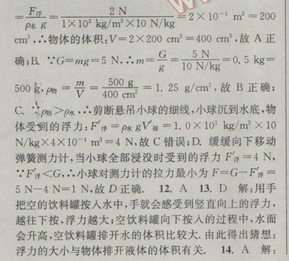 = F浮/ρ水 g = 2 N/1×10³ kg/m³×10 N/kg = 2×10⁻⁴ m³ = 200
cm³, ∴物体的体积: V=2×200 cm³=400 cm³, 故 A 正
确; B. ∵G=mg=5 N, ∴m= G/g = 5 N/10 N/kg = 0.5 kg=
500 g, ρ物= m/V = 500 g/400 cm³ = 1.25 g/cm³, 故 B 正确;
C. ∵ρ物>ρ水, ∴剪断悬吊小球的细线, 小球沉到水底, 物
体受到的浮力: F′浮=ρ水gV′排=1.0×10³ kg/m³×10
N/kg×4×10⁻⁴ m³=4 N, 故 C 错误; D. 缓缓向下移动
弹簧测力计, 当小球全部浸没时受到的浮力 F′浮=4 N,
∵F′浮<G, ∴小球对测力计的拉力最小为 F=G-F′浮=
5 N-4 N=1 N, 故 D 正确. 12. A 13. D 解: 用手
把空的饮料罐按入水中, 手就会感受到竖直向上的浮力,
越往下按, 浮力越大; 空饮料罐向下按入的过程中, 水面
会升高, 空饮料罐排开水的体积比较大. 由此得出猜想:
浮力的大小与物体排开液体的体积有关. 14. A 解: